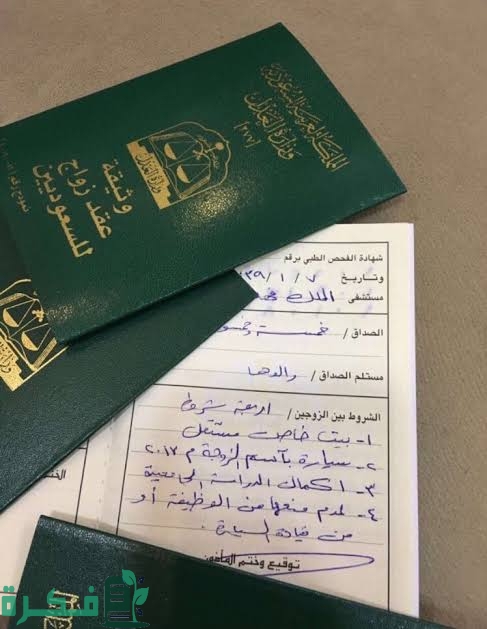 المملكة العربية السعودية
وزارة العدل
(٢٧٧)
وزارة العدل
وثيقة
عقد زواج
للسعوديين
شهادة الفحص الطبي برقم
وتاريخ ٧ / ١ / ٣٩
مستشفى الملك
الصداق / خمسة
مستلم الصداق / والدها
الشروط بين الزوجين / اربعة شروط
١- بيت خاص مستقل
٢- سيارة بآسم الزوجة م ٢٠١٧
٣- اكمال الدراسة الجامعية
٤- عدم منعها من الوظيفة أو
من قيادة السيارة .
توقيع وختم المأذون
فكرة